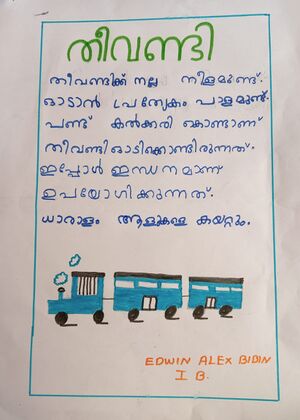 തീവണ്ടി
തീവണ്ടിക്ക് നല്ല നീളമുണ്ട്.
ഓടാൻ പ്രത്യേകം പാളമുണ്ട്.
പണ്ട് കൽക്കരി കൊണ്ടാണ്
തീവണ്ടി ഓടിക്കൊണ്ടിരുന്നത്.
ഇപ്പോൾ ഇന്ധനമാണ്
ഉപയോഗിക്കുന്നത്.
ധാരാളം ആളുകളെ കയറ്റും.
EDWIN ALEX BIBIN
I B.